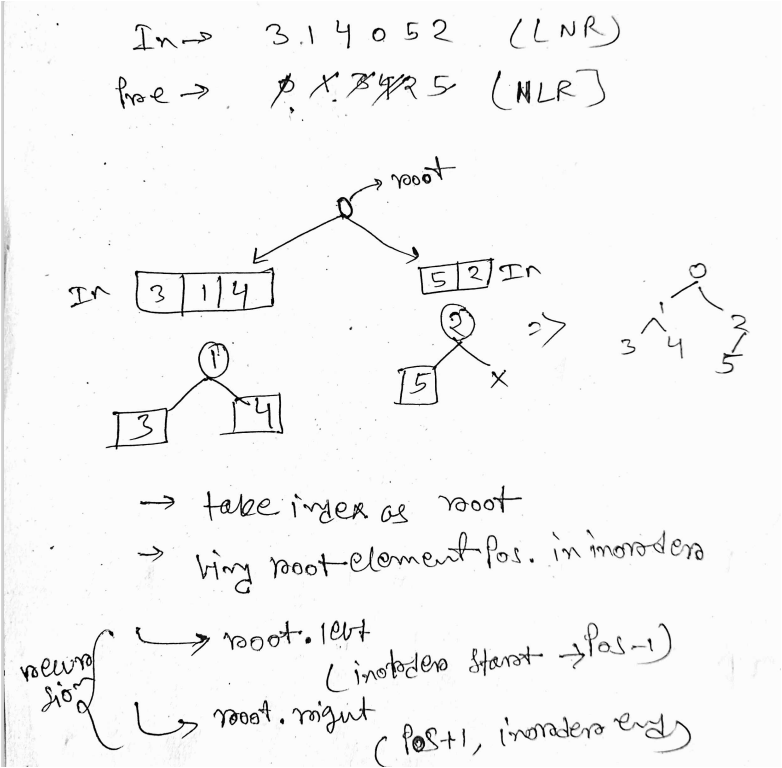 In → 3 1 4 0 5 2 (LNR)
Pre → 0 1 3 4 2 5 (NLR]
0 → root
In 3 1 4
5 2 In
1
3 4
2
5 x
=>
0
1 2
3 4 5
→ take index as root
→ find root element pos. in inorder
recursion
root.left
(inorder start → pos-1)
root.right
(pos+1, inorder end)